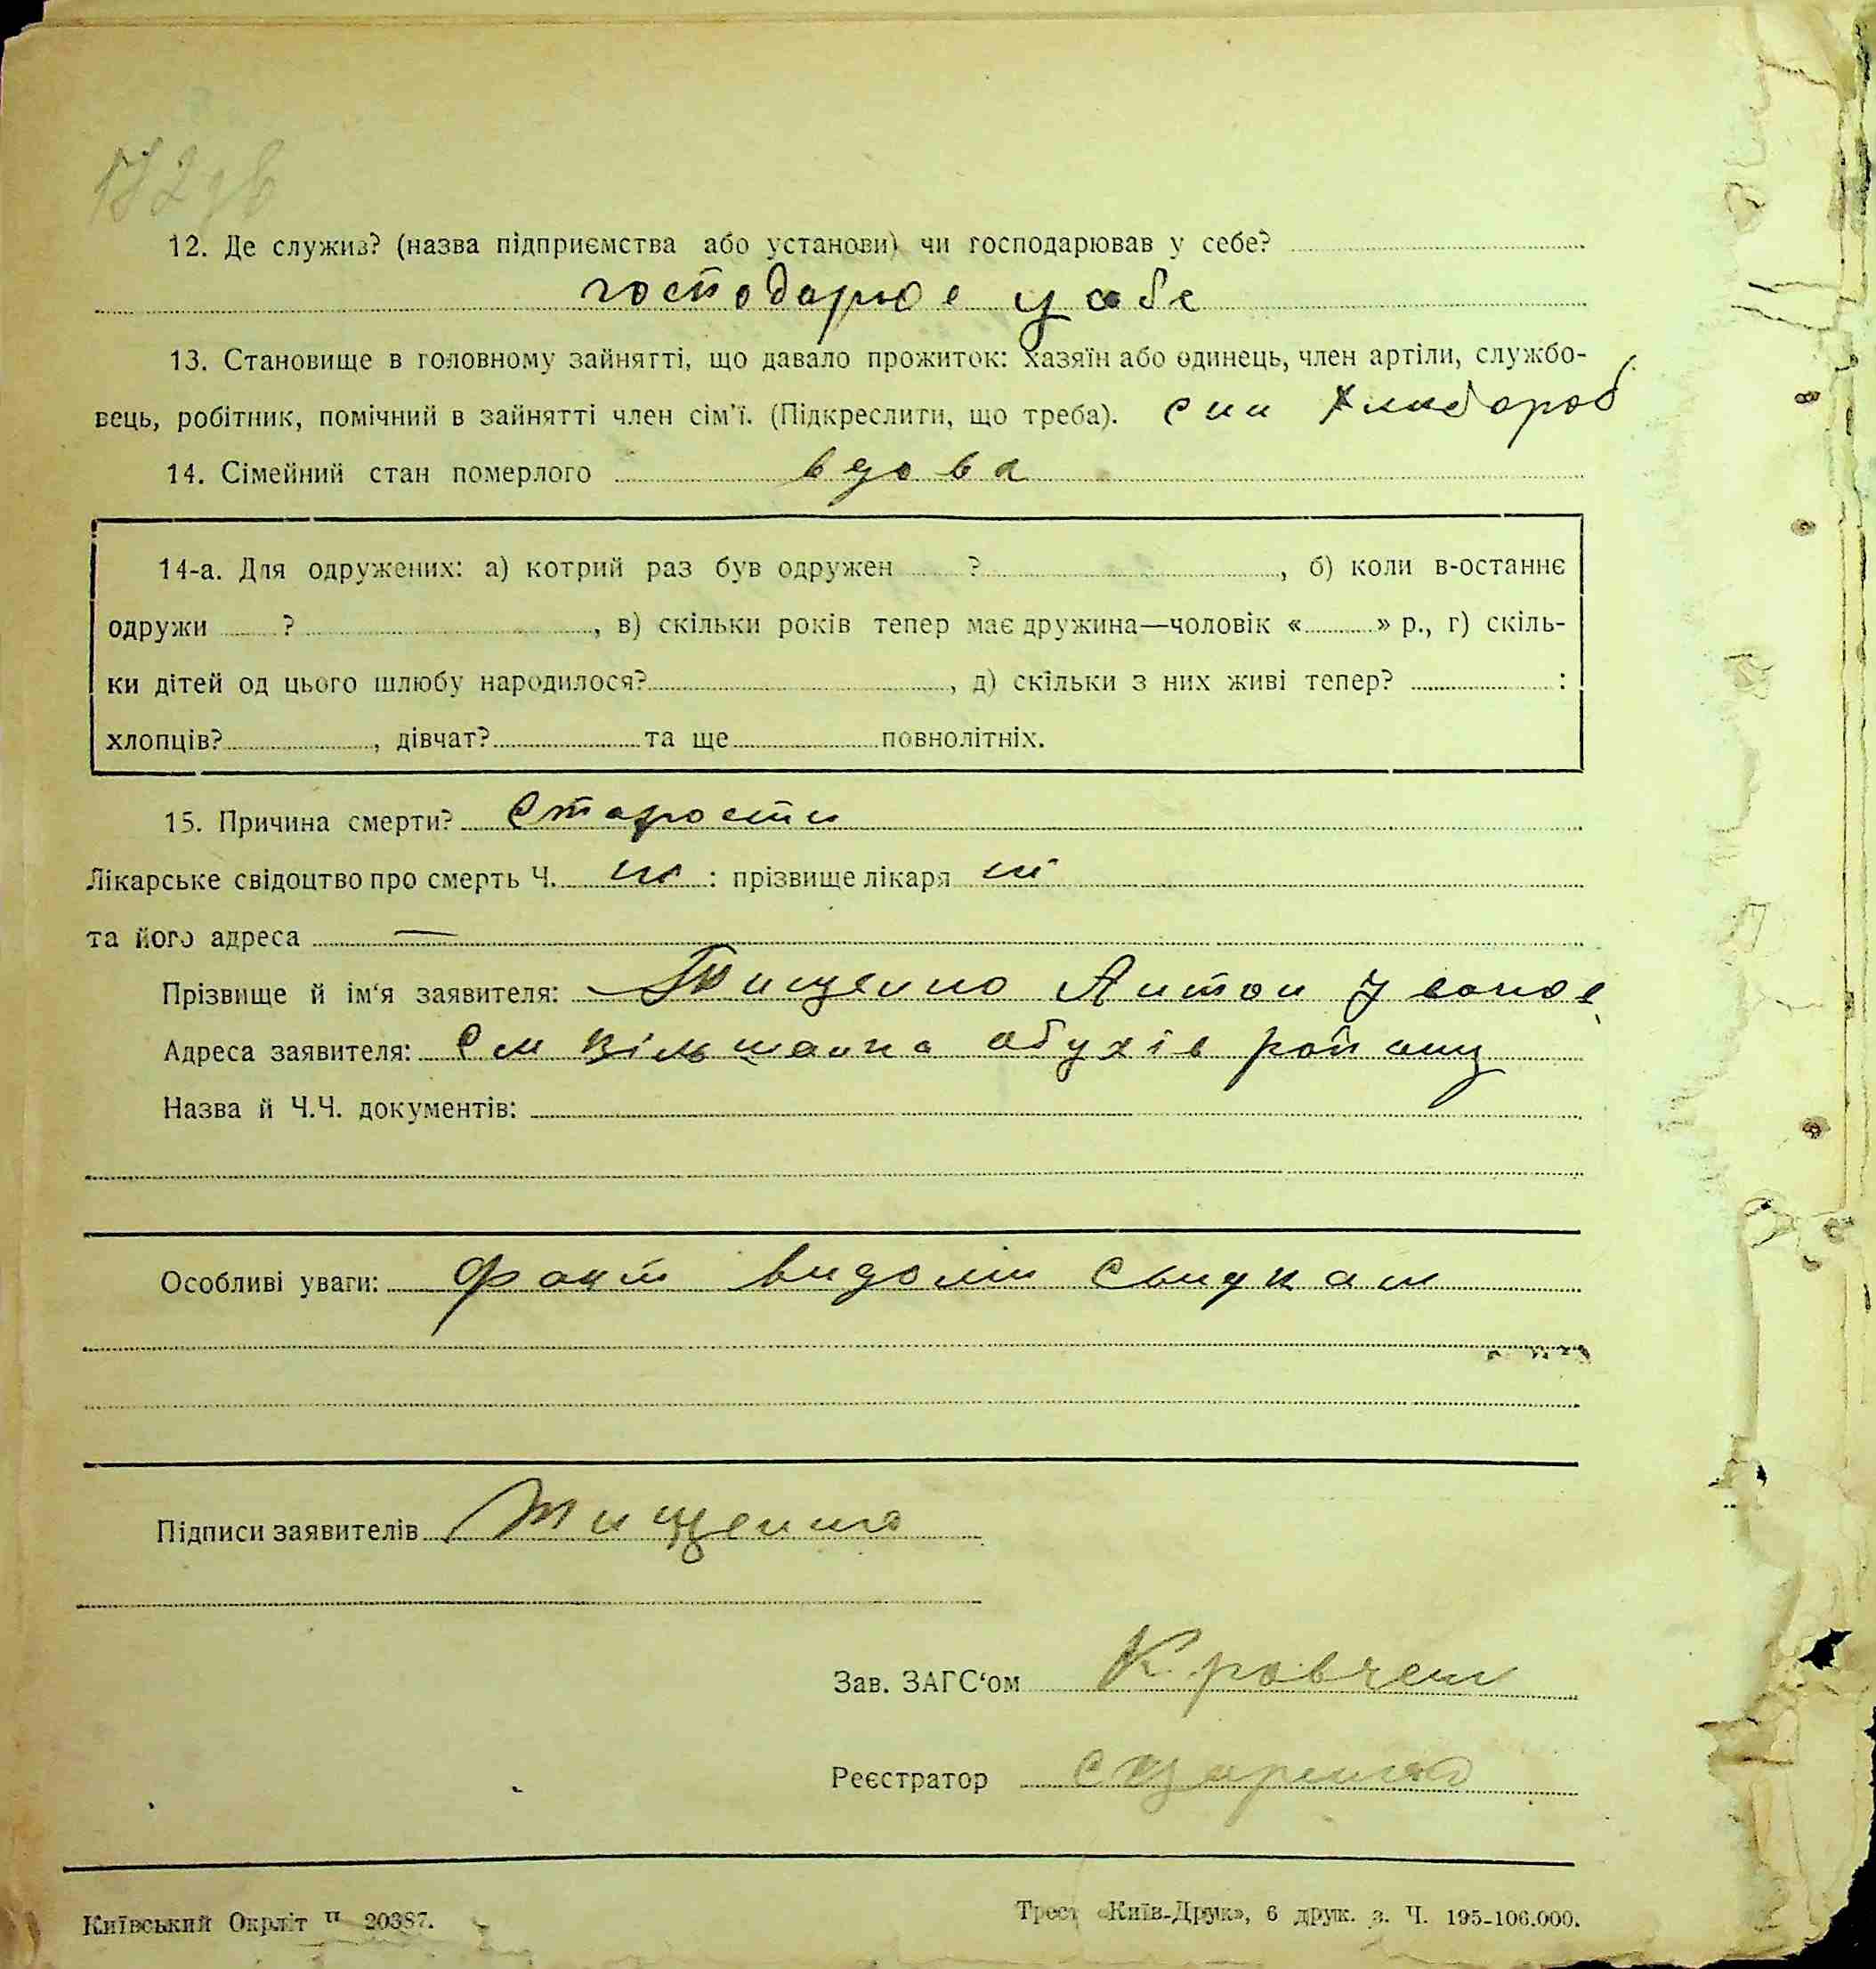 172зв
12. Де служив? (назва підприємства або установи) чи господарював у себе?
господарює у себе
13. Становище в головному зайнятті, що давало прожиток: хазяїн або одинець, член артіли, службо-
вець, робітник, помічний в зайнятті член сім'ї. (Підкреслити, що треба). син хлибороб
14. Сімейний стан померлого вдова
14-а. Для одружених: а) котрий раз був одружен ? , б) коли в-останнє
одружи ? , в) скільки років тепер має дружина—чоловік « » р., г) скіль-
ки дітей од цього шлюбу народилося? , д) скільки з них живі тепер? :
хлопців? , дівчат? та ще повнолітніх.
15. Причина смерти? Старости
Лікарське свідоцтво про смерть Ч. : прізвище лікаря
та його адреса —
Прізвище й ім'я заявителя: Тищенко Антон Іванов
Адреса заявителя: См Вільшанка обухів району
Назва й Ч.Ч. документів:
Особливі уваги: факт видомий свидкам
Підписи заявителів Тищенко
Зав. ЗАГС'ом Кравчен
Реєстратор
Київський Окрліт Ч 20387.
Трест «Київ-Друк», 6 друк. з. Ч. 195-106.000.